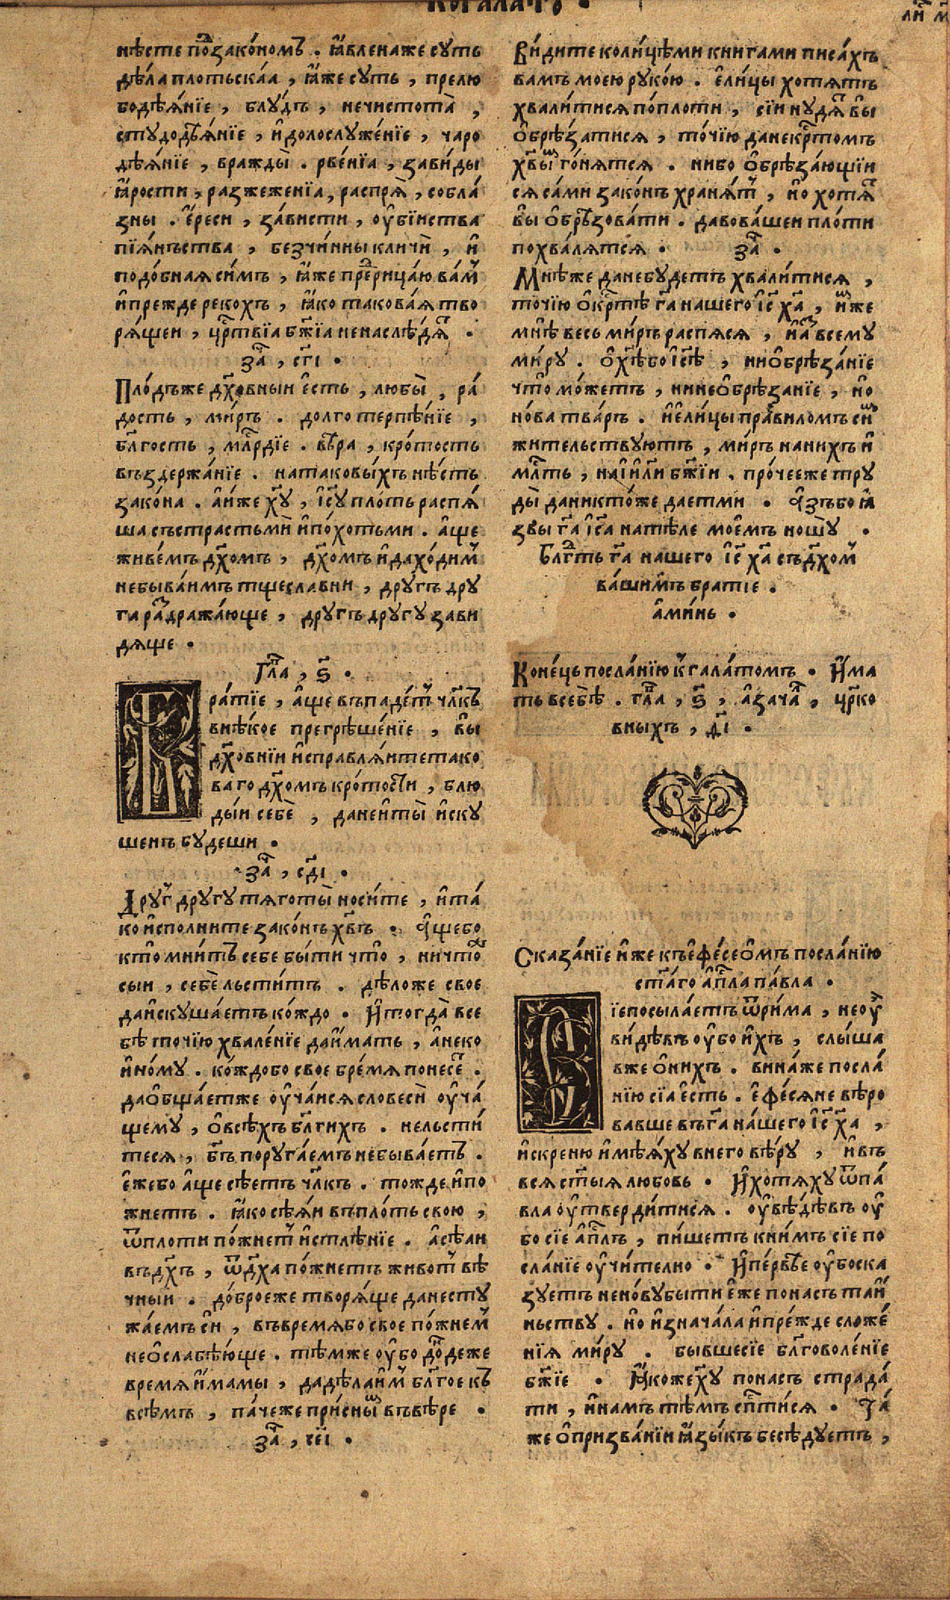 нѣсте по᷁закономъ . ꙗ҆вленаже суть
дѣла плотьскаꙗ , ꙗ҆же суть , прелю
бодѣѧ́нїе , блу́дъ , нечистота̀ ,
студодѣѧ́нїе , и҆долослуже́нїе , чаро
дѣѧ́нїе , вражды̀ . рве́нїа , за́виды
ꙗ҆́рости , разжеже́нїа , распрѧ̀ , собла́
зны . є҆́реси , за́висти , ѹ҆бїиства
пїѧ́нъства , безчи́нны кличѝ , и҆
подо́бнаꙗ си́мъ , ꙗ҆́же пре́рицаю ва́м
и҆прежде рекохъ , ꙗ҆́ко такова́ꙗ тво
рѧ́щеи , цр҃твїа бж҃їа ненаслѣ́дѧ .
за҃ , сг҃і .
Пло́дъже дх҃о́вныи є҆сть , любы̀ , ра́
дость , ми́ръ . долго терпѣ́нїе ,
бл҃гость , мл҃рдїе . вѣ́ра , кро́тость
въздержа́нїе . натаковы́хъ нѣ́сть
зако́на . а҆и́же хв҃у , і҆с҃у пло́ть распѧ́
ша състрастьмѝ и҆по́хотьми . а҆́ще
живе́мъ дх҃омъ , дх҃омъ и҆дахо́дим
небыва́имъ тщесла́вни , дру́гъ дру
га раз̾дража́юще , дру́гъ другу зави
дѧще .
Гла҃ , ѕ҃ .
Бра́тїе , а҆́ще въпаде́т чл҃къ
внѣ́кое прегрѣше́нїе , вы̀
дх҃о́внїи и҆справлѧ́ите тако
ва́го дх҃омъ кро́тости , блю
ды́и себѐ , данеи҆ ты̀ и҆ску
ше́нъ бу́деши .
за҃ , сд҃і .
Дру́г другу тѧготы̀ носи́те , и҆та́
ко и҆спо́лните зако́нъ хв҃ъ . А҆́щебо
кто̀ мни́тъ себе бы́ти что̀ , ничто́ж
сыи , себѐ льсти́тъ . дѣ́ложе свое
даи҆скуша́етъ ко́ждо . И҆тогда̀ все
бѣ̀ то́чїю хвале́нїе даи҆́мать , а҆неко
и҆но́му . ко́ждобо свое бре́мѧ понесе .
даѻ҆бща́етже ѹ҆ча́исѧ словесѝ ѹ҆ча́
щему , ѻ҆всѣ́хъ бл҃ги́хъ . нельсти́
тесѧ , бг҃ъ поруга́емъ небыва́етъ .
є҆́жебо а҆́ще сѣ́етъ чл҃къ . то́жде и҆по
жнетъ . ꙗ҆́ко сѣ́ѧи въпло́ть свою ,
ѿпло́ти по́жнет и҆стлѣ́нїе . а҆сѣ́ѧи
въдх҃ъ , ѿдх҃а по́жнетъ живо́т вѣ́
чныи . до́броеже творѧ́ще данесту
жа́емъ си , въвре́мѧбо свое по́жнем
неѻ҆слабѣ́юще . тѣ́мже ѹ҆́бо до́ндеже
вре́мѧ и҆́мамы , дадѣ́лаим бл҃гое къ
всѣ́мъ , па́чеже при́сным въвѣ́ре .
за҃ , се҃і .
Ви́дите коли́цѣми книгами писа́хъ
вамъ мое́ю руко́ю . є҆ли́цы хотѧ́тъ
хвали́тисѧ по́плоти , сїи ну́дѧт вы
ѻ҆брѣ́затисѧ , то́чїю да некр҃то́мъ
хв҃ы́м гонѧ́тсѧ . нибо ѻ҆брѣза́ющїи
сѧ са́ми зако́нъ хранѧ́т , но̀ хотѧ́т
вы ѻ҆брѣ́зовати . дава́шеи пло́ти
похва́лѧтсѧ . за҃ .
Мнѣ́же данебу́детъ хвали́тисѧ ,
то́чїю ѻ҆кр҃тѣ̀ г҃а нашего і҆с҃ х҃а , и҆мже
мнѣ̀ весь ми́ръ распѧ́сѧ , и҆а҆з всему
ми́ру . ѻ҆хв҃ѣ́бо і҆с҃ѣ , ниѻ҆брѣза́нїе
что̀ мо́жетъ , нинеѻ҆брѣза́нїе , но̀
но́ва тва́рь . и҆є҆ли́цы пра́виломъ сим
жи́тельствуютъ , ми́ръ нани́хъ и҆
мл҃ть , наі҆и҃ли бж҃їи . про́чееже тру
ды̀ данникто́же дае́тми . А҆́зъбо ꙗ҆́
звы г҃а і҆с҃а натѣ́ле мое́мъ ношу̀ .
Бл҃гть г҃а нашего і҆с҃ х҃а съдх҃ом
ва́шимъ бра́тїе .
а҆ми́нь .
Коне́цъ посла́нїю к҆гала́томъ . И҆́ма
ть всебѣ̀ . гла҃ , ѕ҃ , а҆зача́л , цр҃ко
вныхъ , д҃і .
Сказа́нїе и҆́же къе҆фе́сеѻмъ посла́нїю
ст҃а́го а҆п҃ла па́вла .
Сїепосыла́етъ ѿри́ма , неѹ҆
ви́дѣвъ ѹ҆́бо и҆́хъ , слы́ша
вже ѻ҆ни́хъ . вина́же посла́
нїю сїа̀ є҆́сть . є҆фе́сѧне вѣ́ро
вавше въг҃а на́шего і҆с҃ х҃а ,
и҆́скреню и҆мѣ́ѧху внего вѣ́ру , и҆въ
всѧ ст҃ы́ѧ любо́вь . И҆хотѧ́ху ѿпа́
вла ѹ҆тверди́тисѧ . ѹ҆вѣ́дѣвъ ѹ҆́
бо сїе а҆п҃лъ , пи́шетъ кни́мъ сїе по
сла́нїе ѹ҆чи́телно . И҆пе́рвѣе ѹ҆́боска
зуетъ нено́вубыти є҆́же пона́съ таи́
ньству . но̀ и҆знача́ла и҆пре́жде сложе́
нїꙗ ми́ру . бы́вшесїе бл҃говоле́нїе
бж҃їе . Ꙗ҆́коже хв҃у пона́съ страда́
ти , и҆на́мъ тѣ́мъ сп҃ти́сѧ . Та́
же ѻ҆призва́нїи ꙗ҆зы́къ бесѣ́дуетъ ,